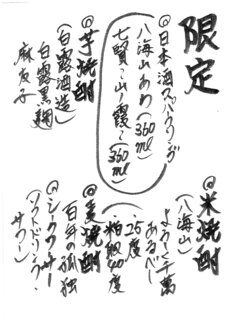 限定
◎日本酒スパークリング
八海山あわ(360ml)
七賢・山ノ霞(360ml)
◎芋焼酎
(白露酒造)
白露黒麹
麻友子
◎米焼酎
(八海山)
よろしく千萬
あるべし
・25度
・粕取40度
◎麦焼酎
百年の孤独
◎シークワーサー
(ソフトドリンク・
サワー)